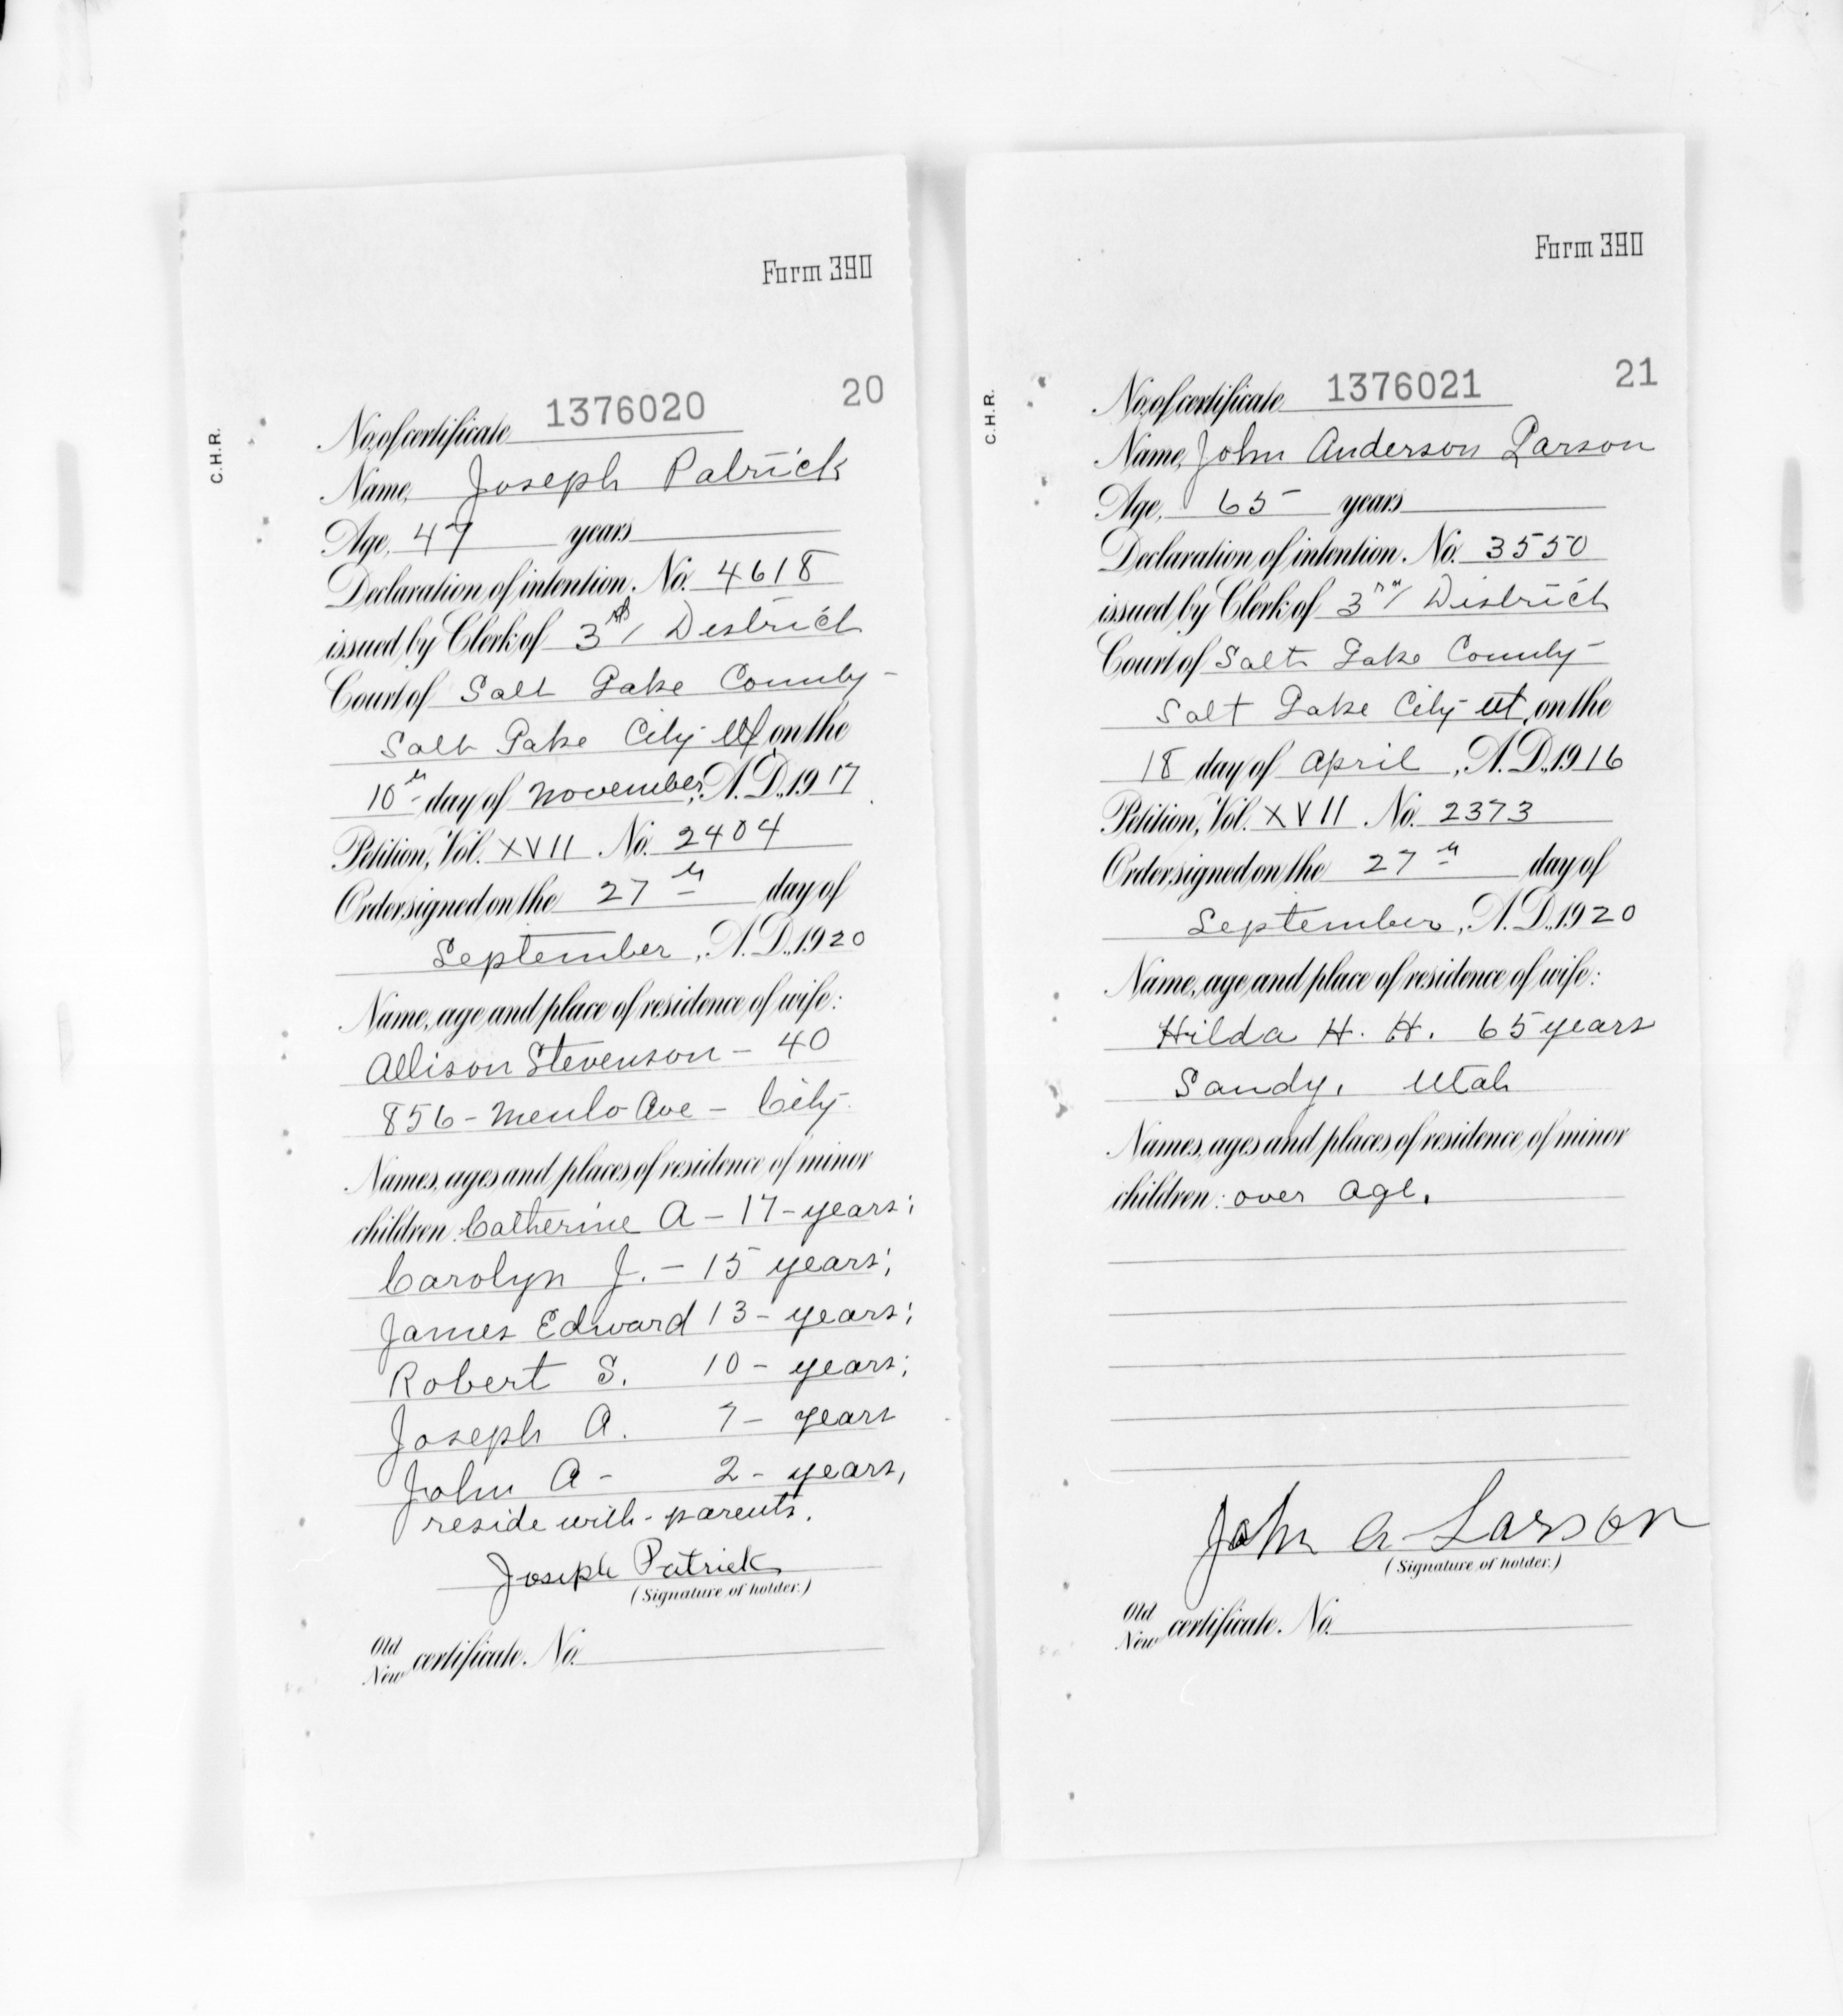 Form 390
C.H.R.
20
No. of certificate 1376020
Name, Joseph Patrick
Age, 47 years
Declaration of intention. No. 4618
issued by Clerk of 3rd District
Court of Salt Lake County-
Salt Lake City Ut on the
10th day of November, A.D., 1917
Petition, Vol. XVII No. 2404
Order signed on the 27th day of
September, A.D., 1920
Name, age and place of residence of wife:
Allison Stevenson - 40
856 - Menlo Ave - City.
Names, ages and places of residence of minor
children: Catherine A - 17 - years;
Carolyn J. - 15 years;
James Edward 13 - years;
Robert S. 10 - years;
Joseph A. 7 - years
John A - 2 - years,
reside with - parents.
Joseph Patrick
(Signature of holder.)
Old
New certificate. No.
Form 390
C.H.R.
21
No. of certificate 1376021
Name, John Anderson Larson
Age, 65 - years
Declaration of intention. No. 3550
issued by Clerk of 3rd District
Court of Salt Lake County-
Salt Lake City Ut, on the
18 day of April, A.D., 1916
Petition, Vol. XVII No. 2373
Order signed on the 27th day of
September, A.D., 1920
Name, age and place of residence of wife:
Hilda H. H. 65 years
Sandy, Utah
Names, ages and places of residence of minor
children: over age.
John A Larson
(Signature of holder.)
Old
New certificate. No.